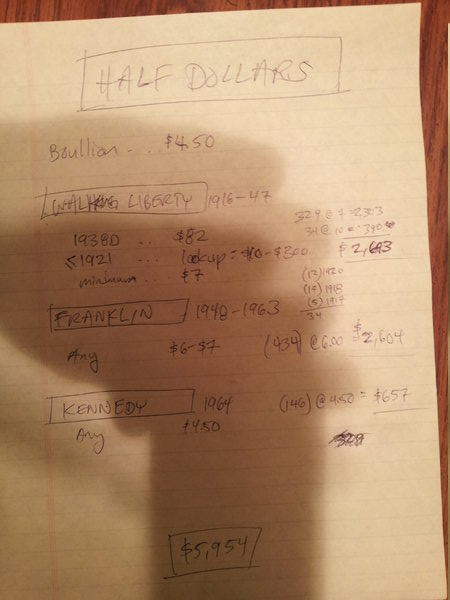 HALF DOLLARS
Boullion ... $4.50
WALKING LIBERTY 1916-47
329 @ 7 = 2303
34 @ 10 = 390
1938D .. $82
≤1921 .. lookup = $10-$300 $2,693
minimum .... $7
(12) 1920
(17) 1918
(5) 1917
34
FRANKLIN 1948-1963
Any $6-$7 (434) @ 6.00 = $2,604
KENNEDY 1964 (146) @ 4.50 = $657
Any $4.50
$5,954